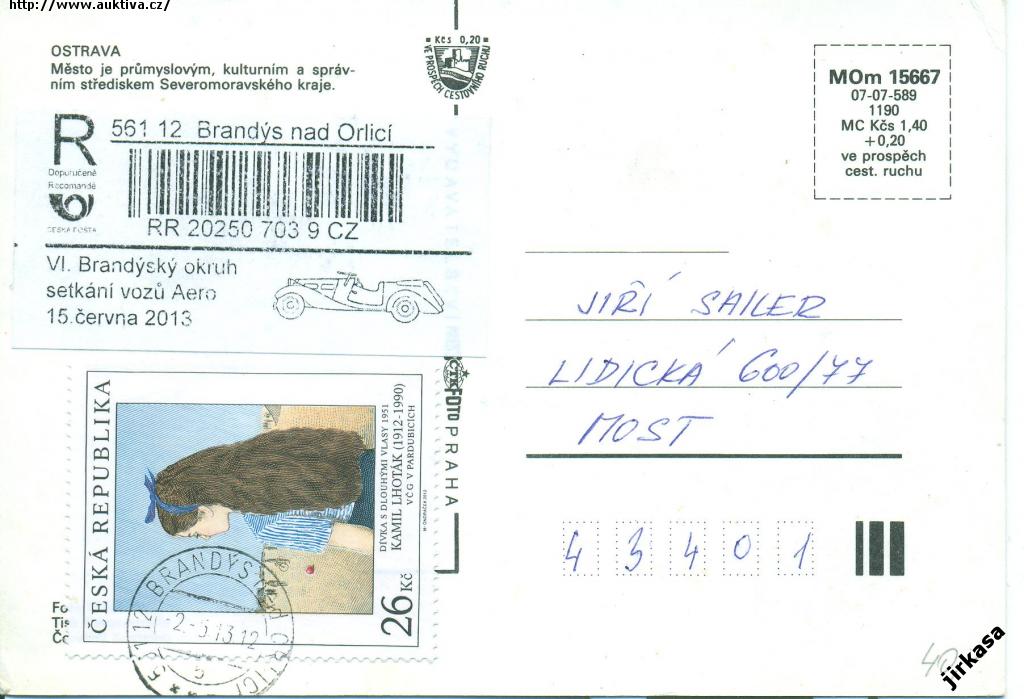 http://www.auktiva.cz/
OSTRAVA
Město je průmyslovým, kulturním a správ-
ním střediskem Severomoravského kraje.
Kčs 0,20
VE PROSPĚCH CESTOVNÍHO RUCHU
MOm 15667
07-07-589
1190
MC Kčs 1,40
+0,20
ve prospěch
cest. ruchu
R
Doporučené
Recomandé
ČESKÁ POŠTA
561 12 Brandýs nad Orlicí
RR 20250 703 9 CZ
VI. Brandýský okruh
setkání vozů Aero
15.června 2013
ČTK FOTO PRAHA
ČESKÁ REPUBLIKA
DÍVKA S DLOUHÝMI VLASY 1951
KAMIL LHOTÁK (1912-1990)
VČG V PARDUBICÍCH
26 Kč
561 12 BRANDÝS
ORLICÍ
13 12
Fo
Tis
JIŘÍ SAILER
LIDICKÁ 600/77
MOST
43401
40
jirkasa